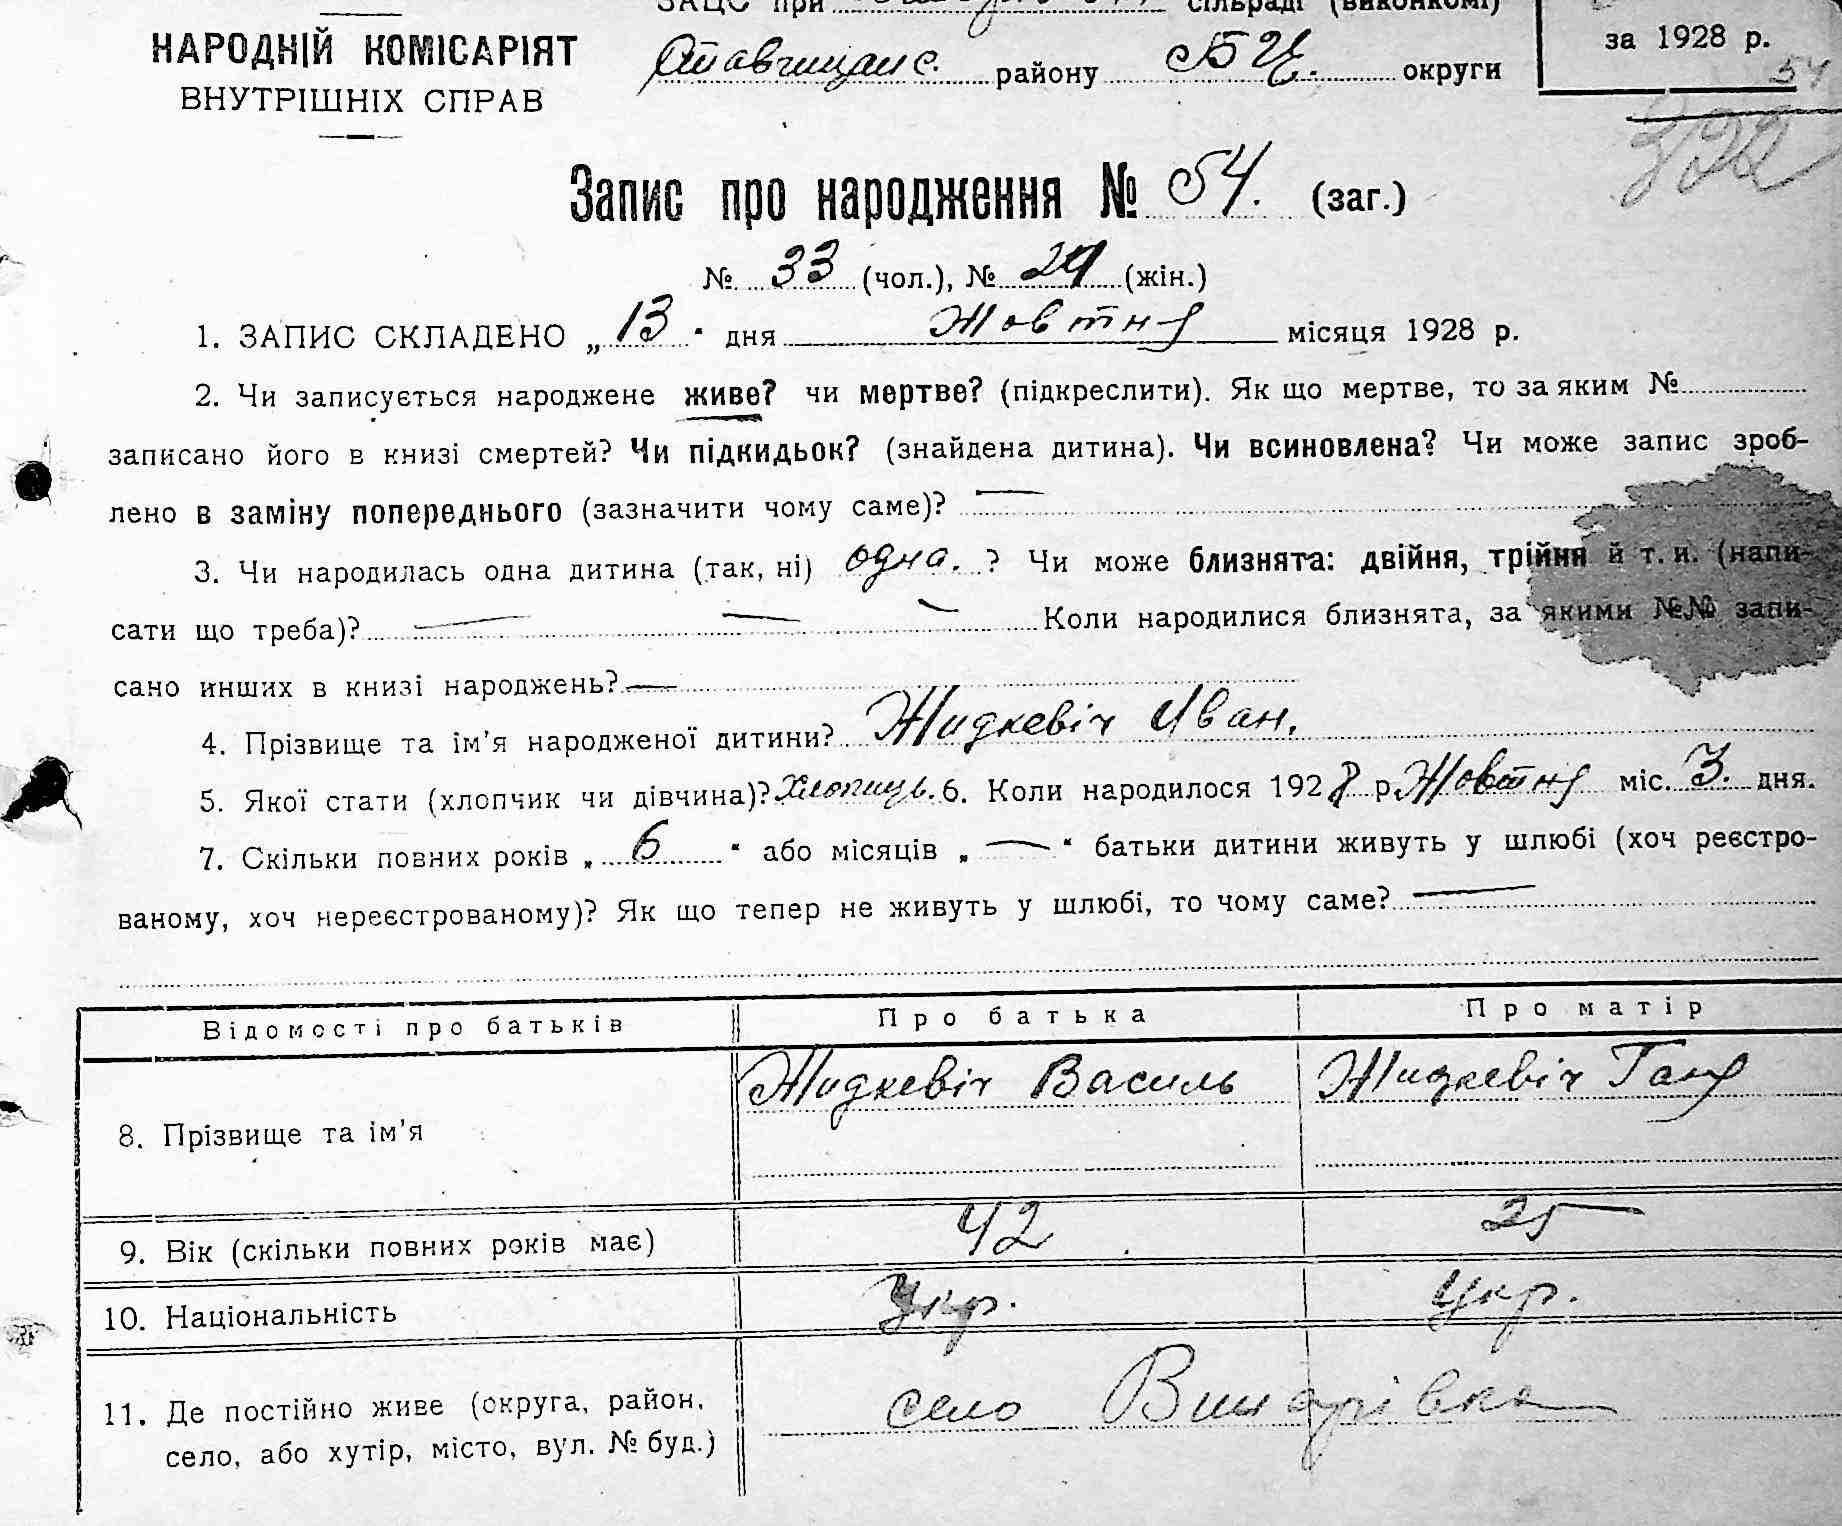 ЗАЦС при сільраді (виконкомі)
НАРОДНІЙ КОМІСАРІЯТ
ВНУТРІШНІХ СПРАВ
Ставищанс. району Б Ц. округи
за 1928 р.
54
322
Запис про народження № 54. (заг.)
№ 33 (чол.), № 21 (жін.)
1. ЗАПИС СКЛАДЕНО „ 13 " дня Жовтня місяця 1928 р.
2. Чи записується народжене живе? чи мертве? (підкреслити). Як що мертве, то за яким №
записано його в книзі смертей? Чи підкидьок? (знайдена дитина). Чи всиновлена? Чи може запис зроб-
лено в заміну попереднього (зазначити чому саме)? —
3. Чи народилась одна дитина (так, ні) одна. ? Чи може близнята: двійня, трійня й т. и. (напи-
сати що треба)? — — — Коли народилися близнята, за якими №№ запи-
сано инших в книзі народжень? —
4. Прізвище та ім'я народженої дитини? Жидкевіч Иван.
5. Якої стати (хлопчик чи дівчина)? Хлопиць. 6. Коли народилося 1928 р. Жовтня міс. 3. дня.
7. Скільки повних років „ 6 " або місяців „ — " батьки дитини живуть у шлюбі (хоч реєстро-
ваному, хоч нереєстрованому)? Як що тепер не живуть у шлюбі, то чому саме? —
Відомості про батьків Про батька Про матір
8. Прізвище та ім'я Жидкевіч Василь Жидкевіч Ганя
9. Вік (скільки повних років має) 42 25
10. Національність Укр. Укр.
11. Де постійно живе (округа, район, село, або хутір, місто, вул. № буд.) село Винарівка